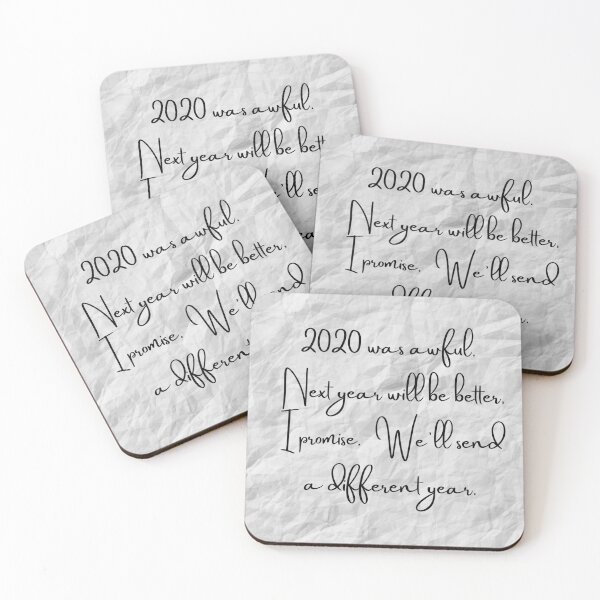 2020 was awful.
Next year will be
I
2020 was awful.
Next year will be better.
I promise. We'll send
2020 was awful.
Next year will be better.
I promise. We'll
a different
2020 was awful.
Next year will be better.
I promise. We'll send
a different year.